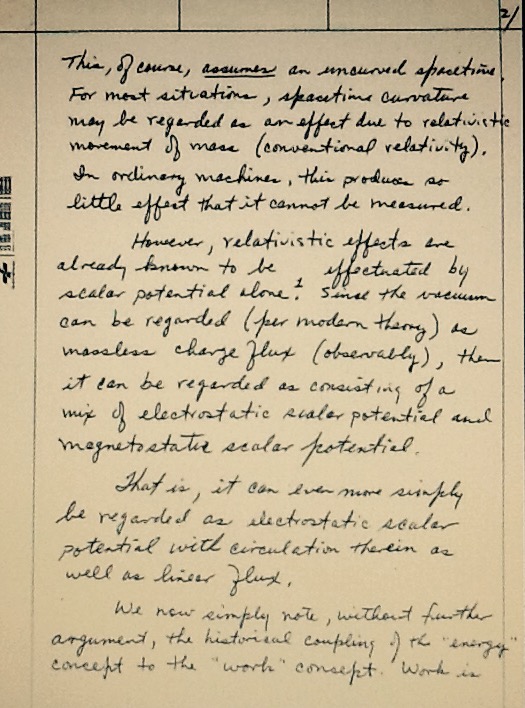 2/
This, of course, assumes an uncurved spacetime.
For most situations, spacetime curvature
may be regarded as an effect due to relativistic
movement of mass (conventional relativity).
In ordinary machines, this produces so
little effect that it cannot be measured.
However, relativistic effects are
already known to be effectuated by
scalar potential alone.¹ Since the vacuum
can be regarded (per modern theory) as
massless charge flux (observably), then
it can be regarded as consisting of a
mix of electrostatic scalar potential and
magnetostatic scalar potential.
That is, it can even more simply
be regarded as electrostatic scalar
potential with circulation therein as
well as linear flux.
We now simply note, without further
argument, the historical coupling of the "energy"
concept to the "work" concept. Work is